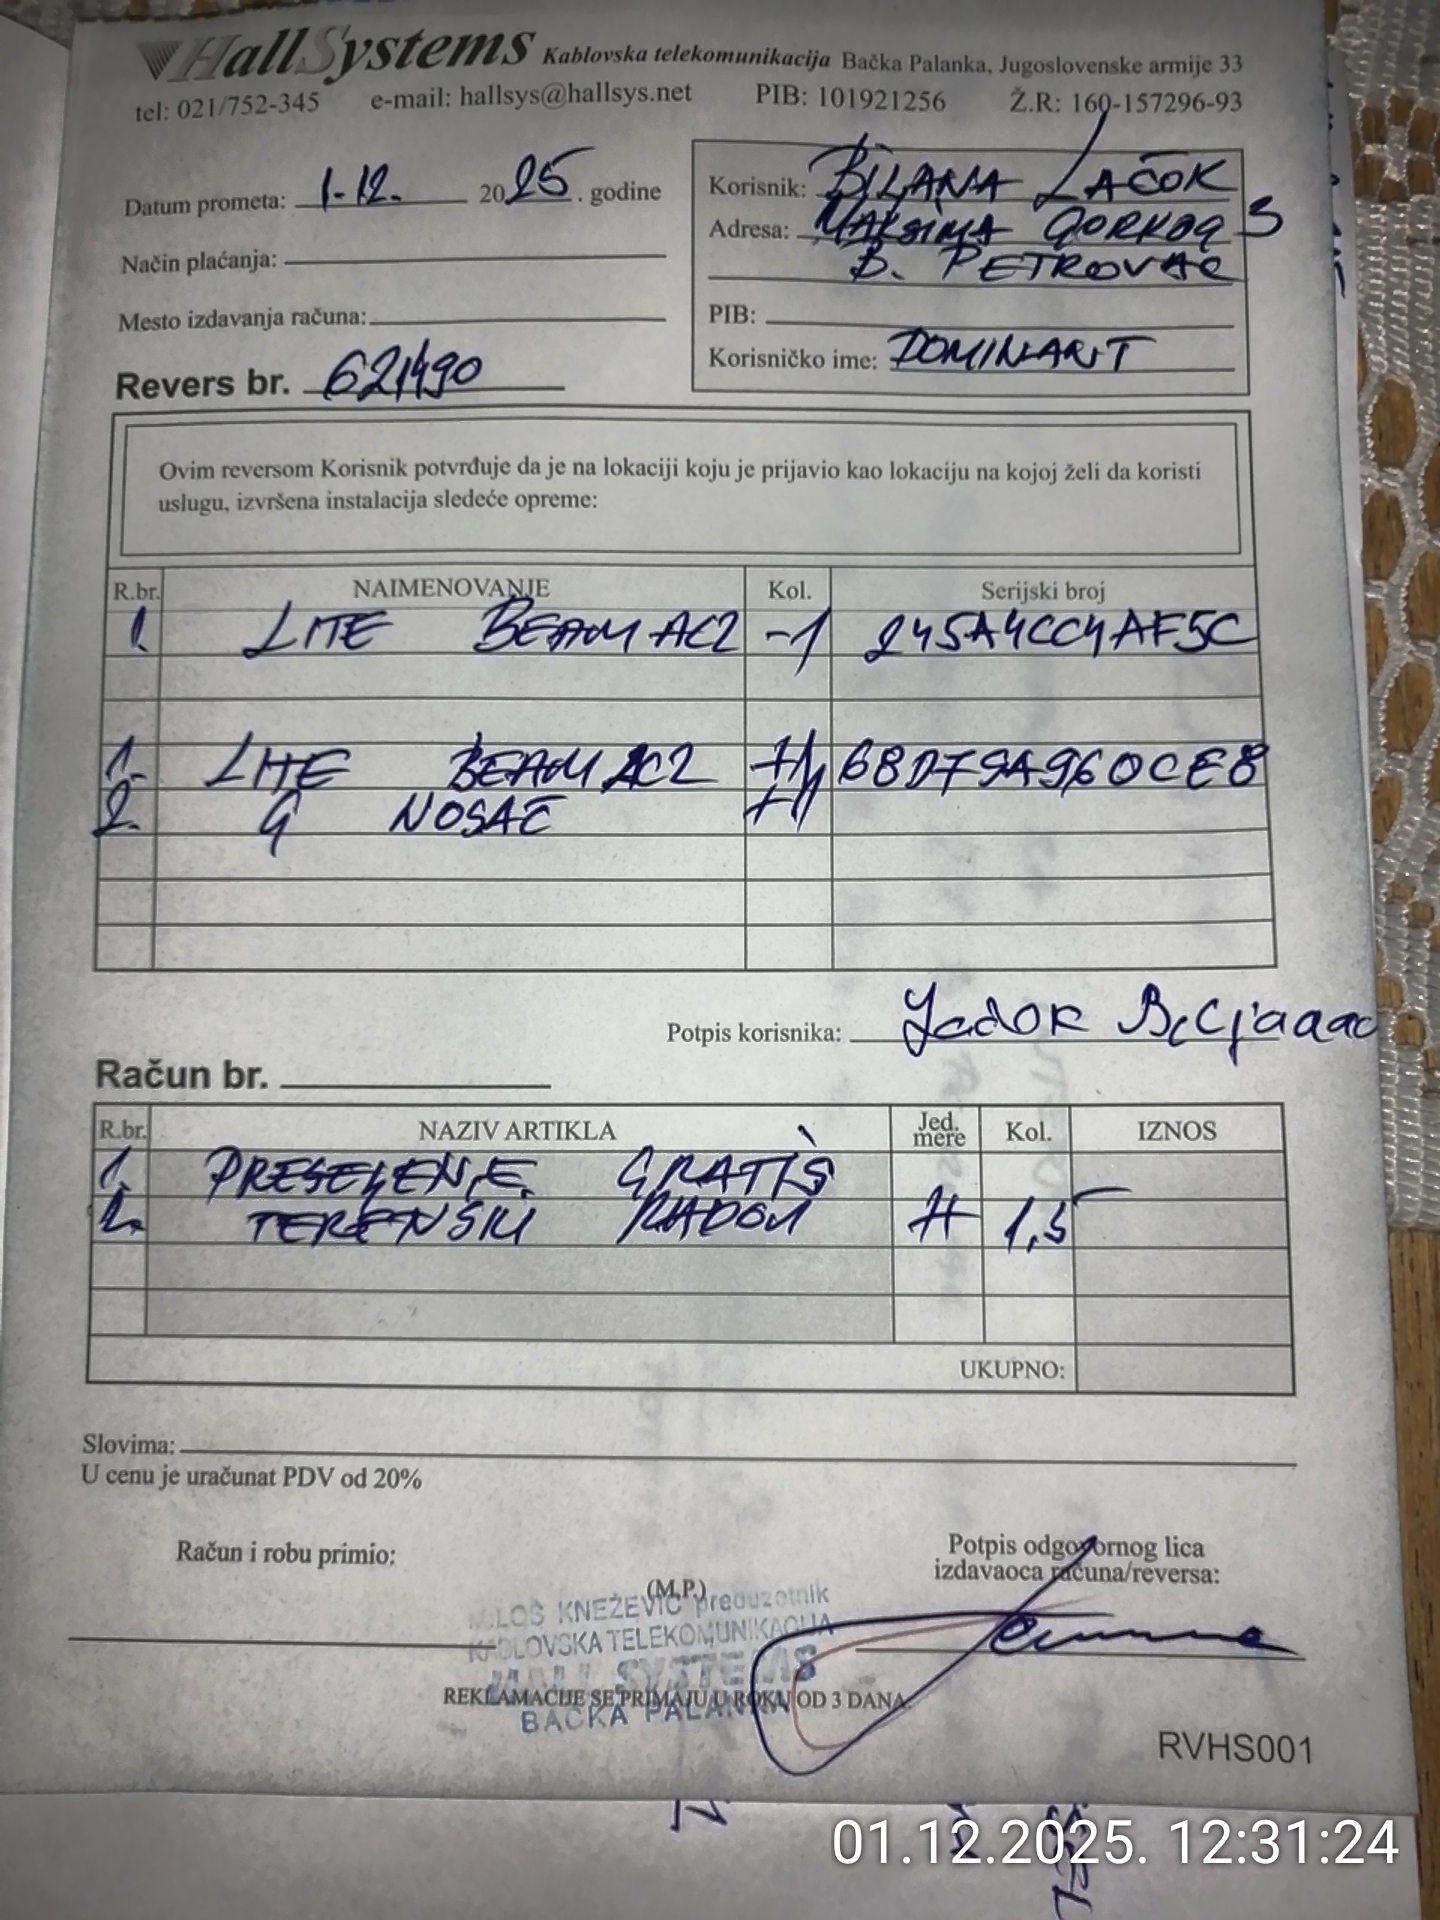 HallSystems Kablovska telekomunikacija Bačka Palanka, Jugoslovenske armije 33
tel: 021/752-345 e-mail: hallsys@hallsys.net PIB: 101921256 Ž.R: 160-157296-93
Datum prometa: 1.12. 2025. godine
Način plaćanja:
Mesto izdavanja računa:
Revers br. 621490
Korisnik: BILANA LAČOK
Adresa: MAKSIMA GORKOG 3
B. PETROVAC
PIB:
Korisničko ime: DOMINANT
Ovim reversom Korisnik potvrđuje da je na lokaciji koju je prijavio kao lokaciju na kojoj želi da koristi
uslugu, izvršena instalacija sledeće opreme:
R.br. NAIMENOVANJE Kol. Serijski broj
1. LITE BEAM AC2 -1 245A4CC4AF5C
1. LITE BEAM AC2 +1 68D79A960CE8
2. G NOSAČ +1
Potpis korisnika: Lačok Biljana
Račun br.
R.br. NAZIV ARTIKLA Jed. mere Kol. IZNOS
1. PRESELENJE GRATIS
2. TERENSKI RADOVI H 1,5
UKUPNO:
Slovima:
U cenu je uračunat PDV od 20%
Račun i robu primio:
(M.P.)
Potpis odgovornog lica
izdavaoca računa/reversa:
MILOŠ KNEŽEVIĆ preduzetnik
KABLOVSKA TELEKOMUNIKACIJA
HALL SYSTEMS
REKLAMACIJE SE PRIMAJU U ROKU OD 3 DANA
BAČKA PALANKA
RVHS001
01.12.2025. 12:31:24